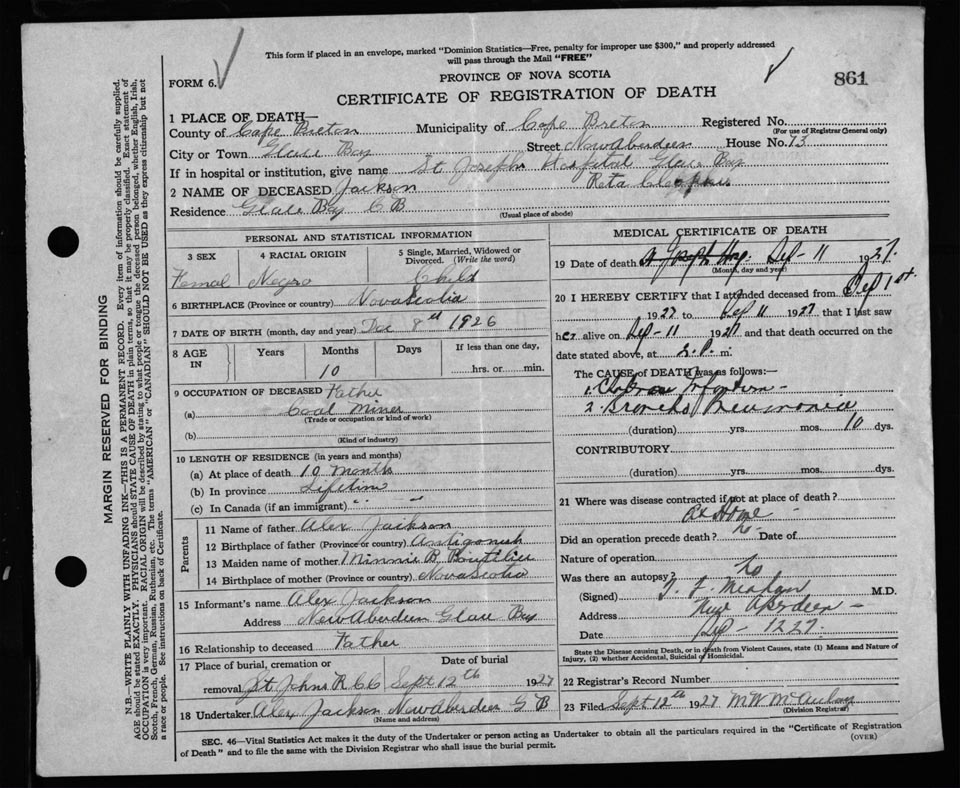 This form if placed in an envelope, marked "Dominion Statistics—Free, penalty for improper use $300," and properly addressed
will pass through the Mail "FREE"
FORM 6.
PROVINCE OF NOVA SCOTIA
861
CERTIFICATE OF REGISTRATION OF DEATH
1 PLACE OF DEATH—
County of Cape Breton Municipality of Cape Breton Registered No.
(For use of Registrar General only)
City or Town Glace Bay Street New Aberdeen House No. 73
If in hospital or institution, give name St Josephs Hospital Glace Bay
2 NAME OF DECEASED Jackson Reta
Residence Glace Bay C B
(Usual place of abode)
PERSONAL AND STATISTICAL INFORMATION
3 SEX 4 RACIAL ORIGIN 5 Single, Married, Widowed or Divorced. (Write the word)
Femal Negro Child
6 BIRTHPLACE (Province or country) Nova Scotia
7 DATE OF BIRTH (month, day and year) Dec 8th 1926
8 AGE IN Years Months Days If less than one day,
10 hrs. or min.
9 OCCUPATION OF DECEASED Father
(a) Coal Miner
(Trade or occupation or kind of work)
(b)
(Kind of industry)
10 LENGTH OF RESIDENCE (in years and months)
(a) At place of death 10 Months
(b) In province Lifetime
(c) In Canada (if an immigrant) " "
Parents
11 Name of father Alex Jackson
12 Birthplace of father (Province or country) Antigonish
13 Maiden name of mother Minnie B. Boutilier
14 Birthplace of mother (Province or country) Nova Scotia
15 Informant's name Alex Jackson
Address New Aberdeen Glace Bay
16 Relationship to deceased Father
17 Place of burial, cremation or Date of burial
removal St Johns R C C Sept 12th 1927
18 Undertaker Alex Jackson New Aberdeen G B
(Name and address)
MEDICAL CERTIFICATE OF DEATH
19 Date of death St Joseph Hosp. Sep - 11 1927.
(Month, day and year)
20 I HEREBY CERTIFY that I attended deceased from Sep 1st.
1927 to Sep 11 1927 that I last saw
her alive on Sep - 11 1927 and that death occurred on
date stated above, at P. m.
The CAUSE OF DEATH was as follows:
1. Cholera Infantum -
2 Broncho Pneumonia
(duration) yrs. mos. 10 dys.
CONTRIBUTORY
(duration) yrs. mos. dys.
21 Where was disease contracted if not at place of death?
At Home -
Did an operation precede death? No Date of
Nature of operation
Was there an autopsy? No
(Signed) M.D.
Address New Aberdeen -
Date Sep - 12 27.
State the Disease causing Death, or in death from Violent Causes, state (1) Means and Nature of
Injury, (2) whether Accidental, Suicidal or Homicidal.
22 Registrar's Record Number
23 Filed Sept 12th 1927 M W McAulay
(Division Registrar)
SEC. 46—Vital Statistics Act makes it the duty of the Undertaker or person acting as Undertaker to obtain all the particulars required in the "Certificate of Registration
of Death" and to file the same with the Division Registrar who shall issue the burial permit.
(OVER)
MARGIN RESERVED FOR BINDING
N.B.—WRITE PLAINLY WITH UNFADING INK—THIS IS A PERMANENT RECORD. Every item of information should be carefully supplied.
AGE should be stated EXACTLY. PHYSICIANS should STATE CAUSE OF DEATH in plain terms, so that it may be properly classified. Exact statement of
OCCUPATION is very important. RACIAL ORIGIN will be described by stating to what people or tongue the deceased person belonged, whether English, Irish,
Scotch, French, German, Russian, Ruthenian, etc. The terms "AMERICAN" or "CANADIAN" SHOULD NOT BE USED as they express citizenship but not
a race or people. See instructions on back of Certificate.